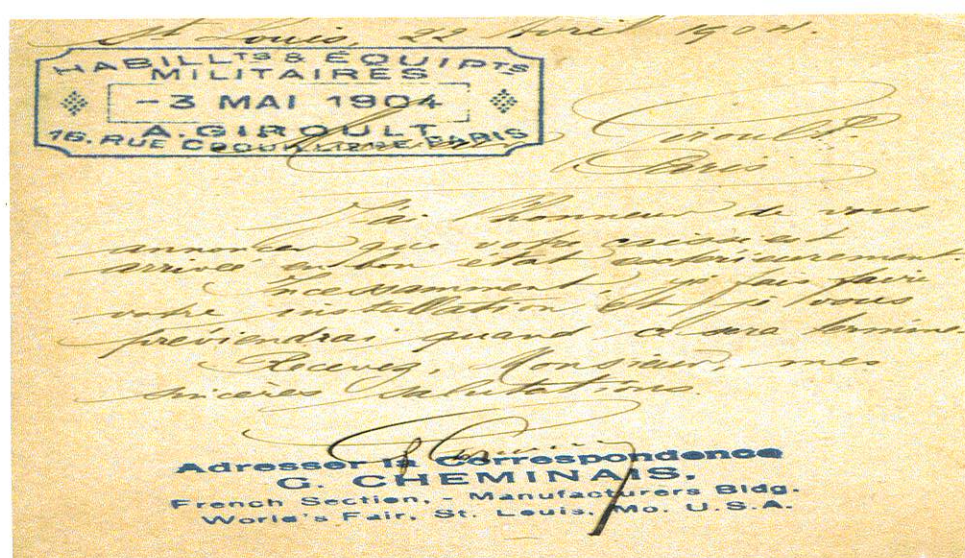 St Louis, 22 Avril 1904.
HABILLTS & ÉQUIPTS
MILITAIRES
-3 MAI 1904
A. GIROULT
16, RUE CROQUILLIÈRE, PARIS
Monsieur Giroult.
Paris
J'ai l'honneur de vous
annoncer que votre caisse est
arrivée en bon état extérieurement.
Incessamment je fais faire
votre installation et je vous
préviendrai quand ce sera terminé
Recevez, Monsieur, mes
sincères salutations.
Adresser la Correspondence
C. CHEMINAIS,
French Section, - Manufacturers Bldg.
World's Fair, St. Louis, Mo. U.S.A.